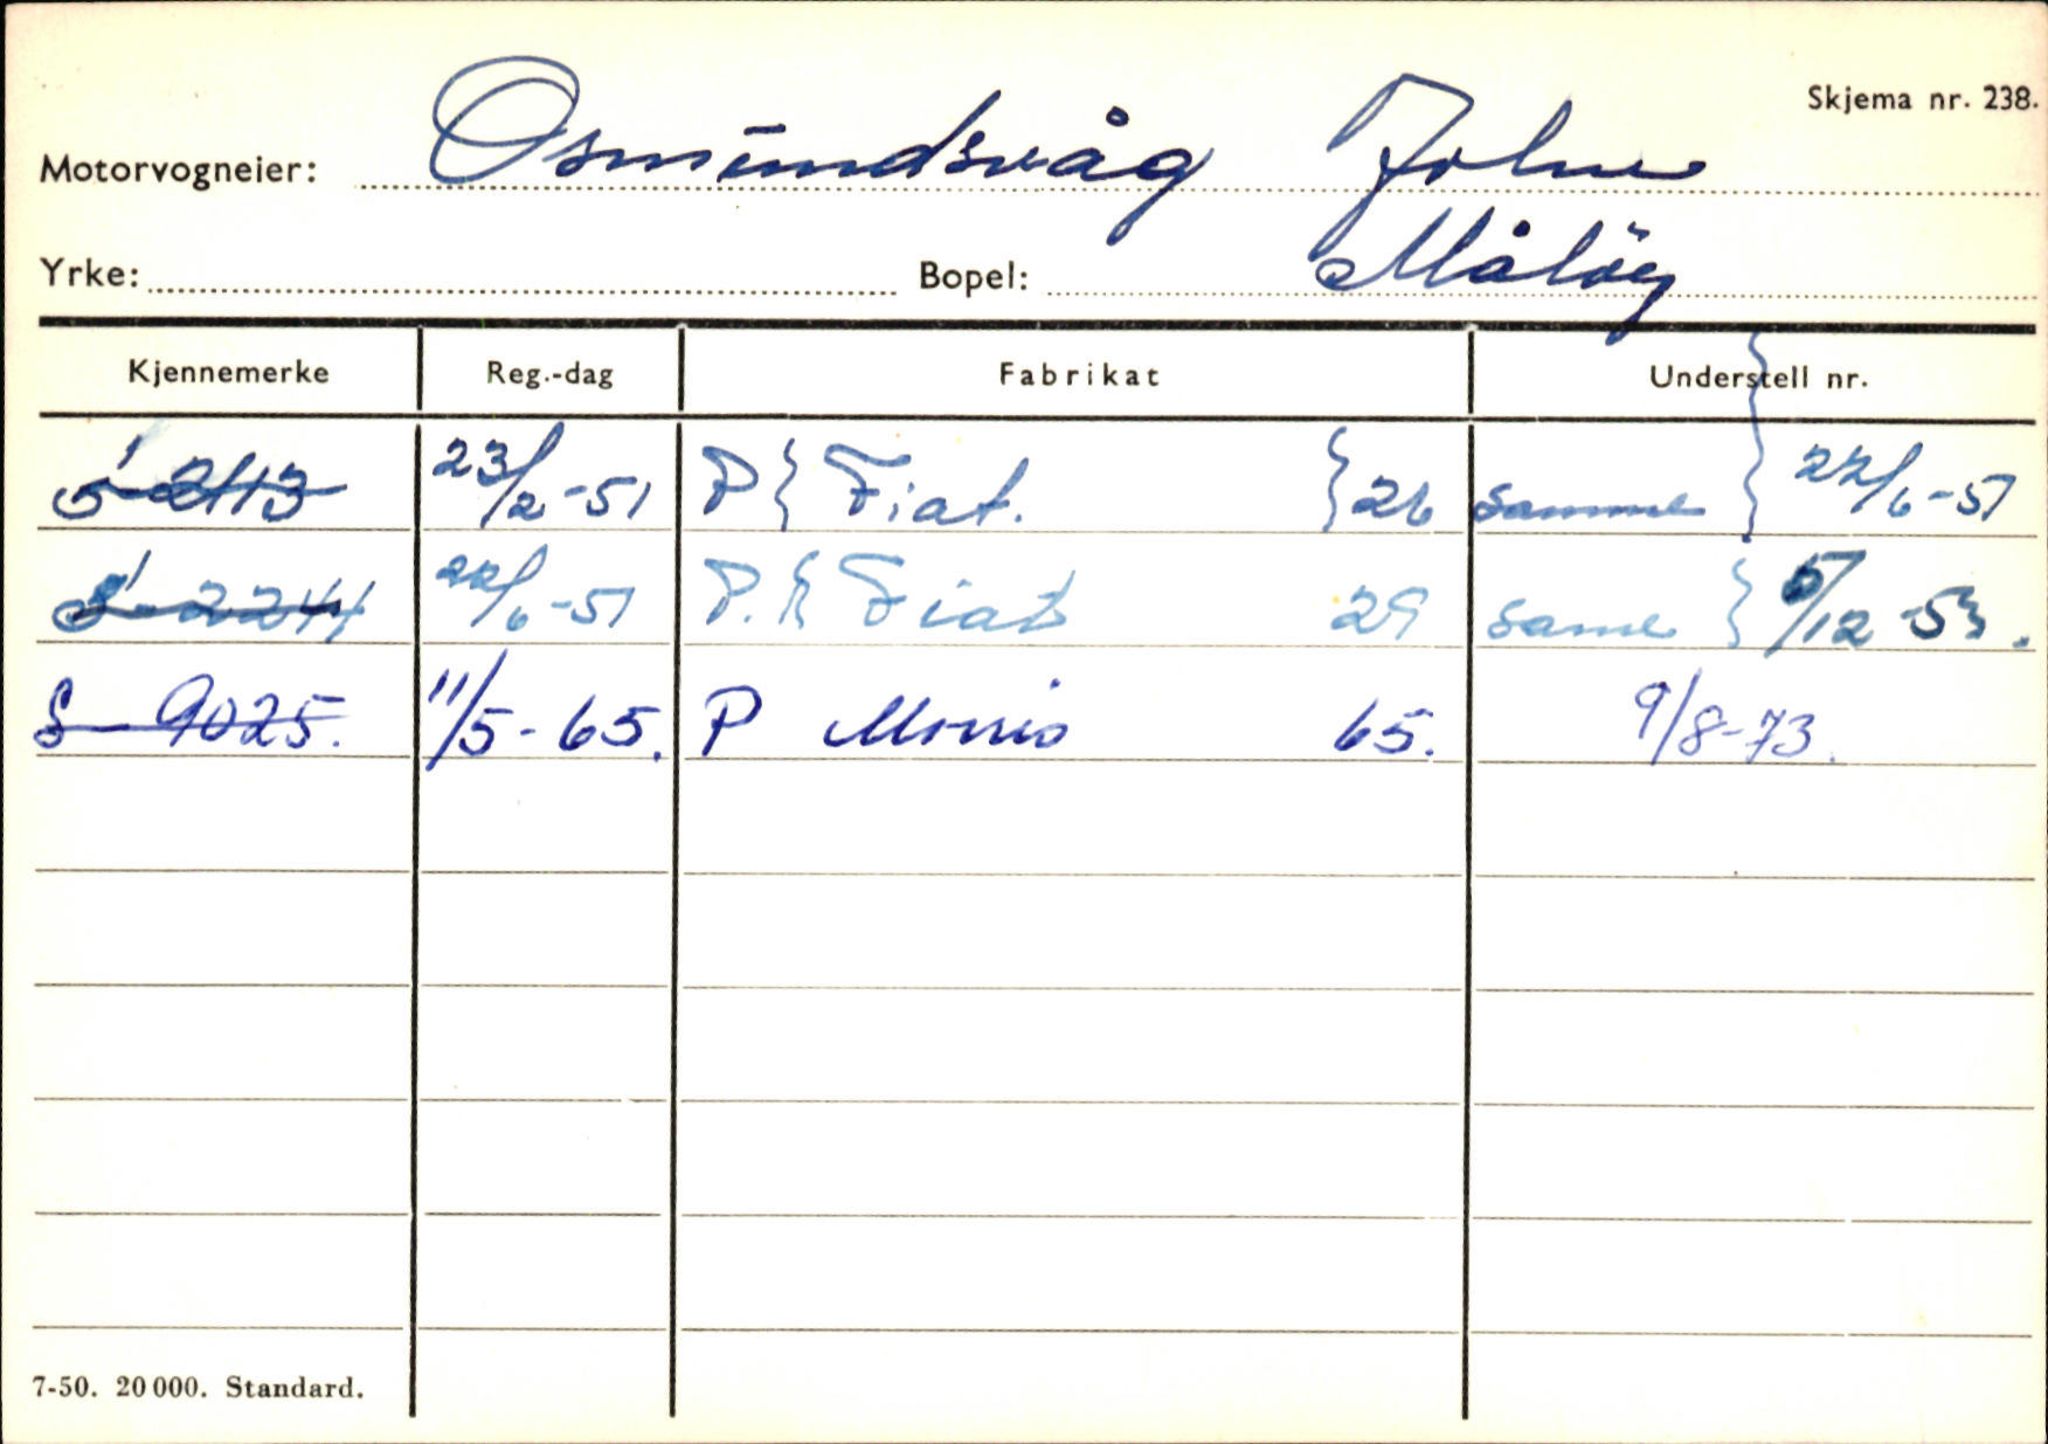 Skjema nr. 238.
Motorvogneier: Osmundsvåg John
Yrke: Bopel: Målöy
Kjennemerke Reg.-dag Fabrikat Understell nr.
S-2113 23/2-51 P } Fiat. } 26 samme } 22/6-51
S-2244 22/6-51 P. } Fiat 29 same } 5/12-53.
S-9025. 11/5-65. P Morris 65. 9/8-73.
7-50. 20 000. Standard.